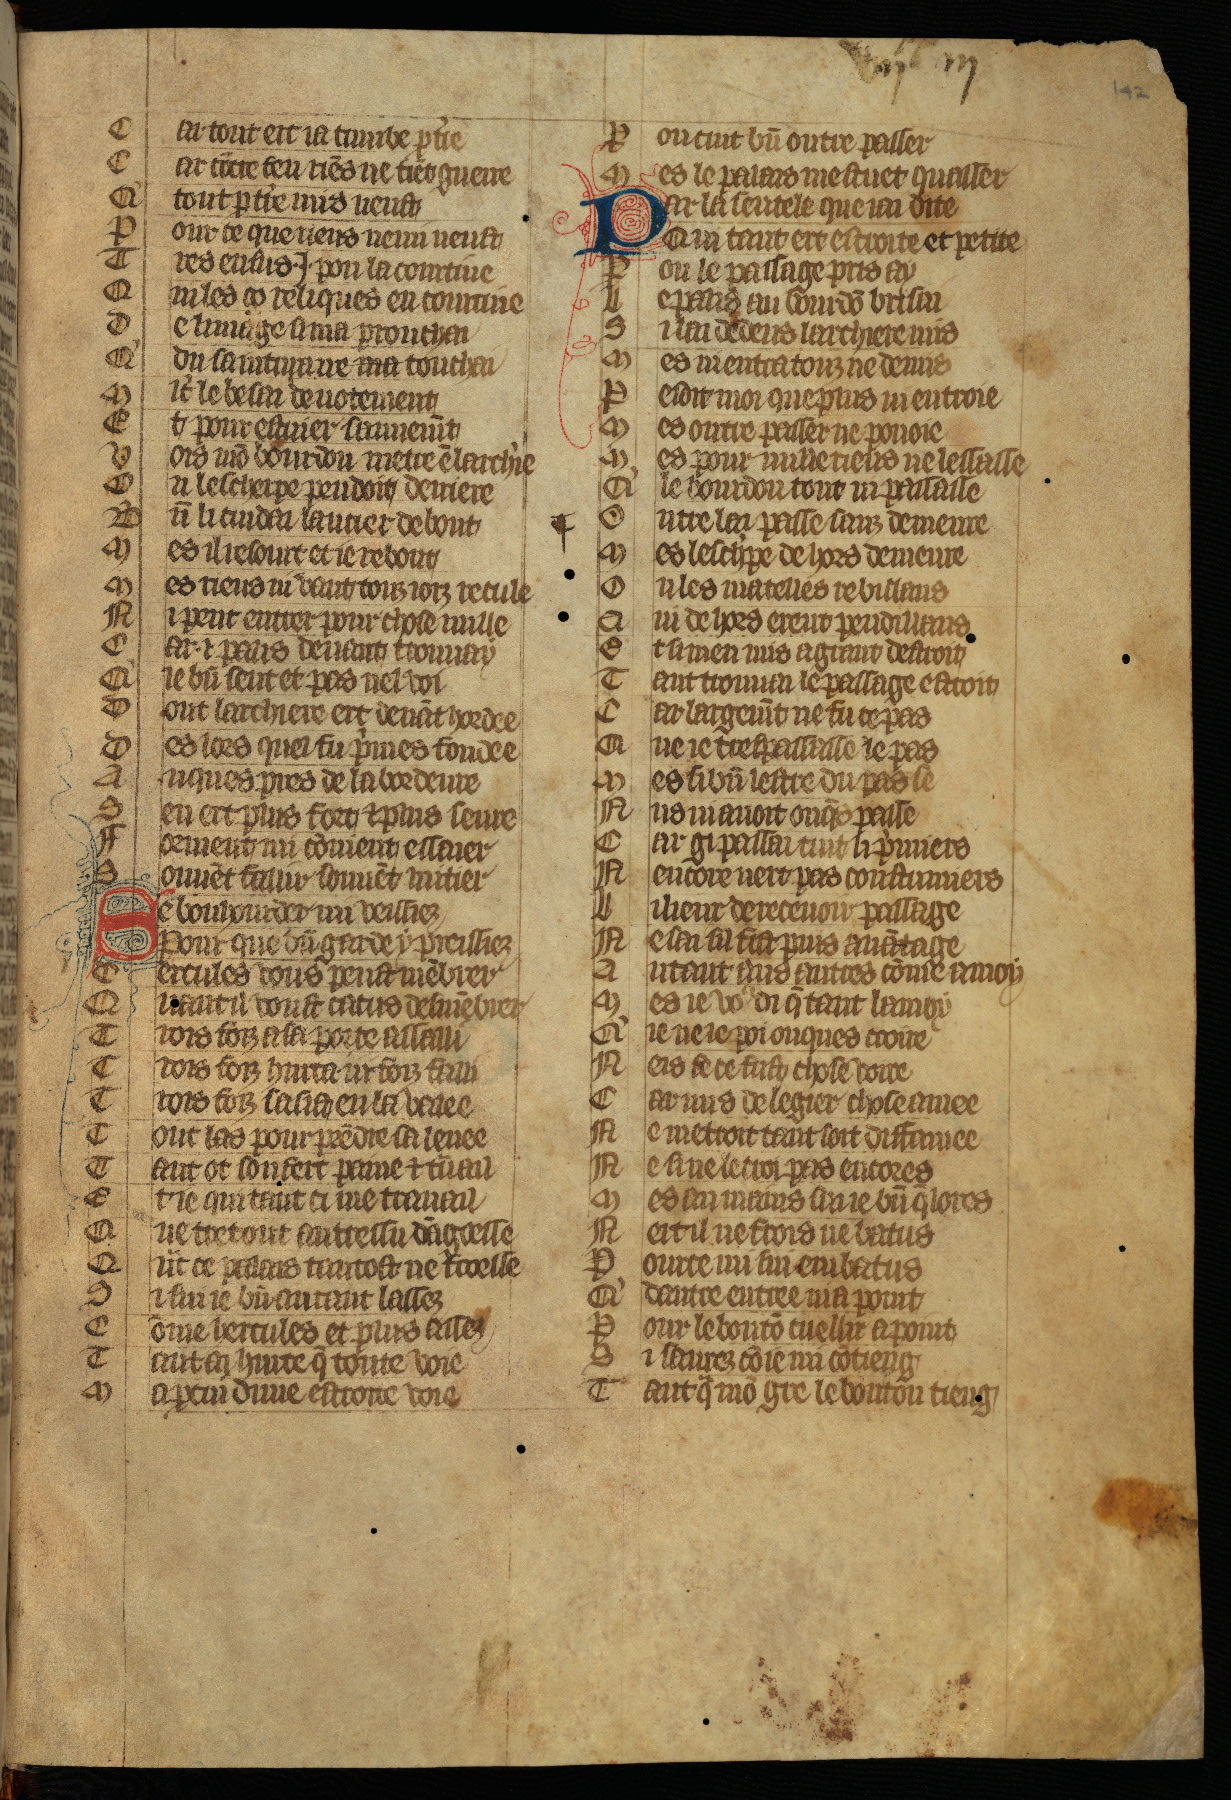 142
Car tout ert ia tumbe p̃tie
Car cõtre feu riẽs ne tiẽt guerre
Qͥ tout p̃tie mis neust
Pour ce que riens nenni neust
Tres ensus .j. pou la courtine
Qui les reliques encourtine
De limage si ma prouchai
Qͥ du saintuaire ma touchai
Mlt̃ le besai deuotement
Et pour estuier sainnem̃t
Vois mõ bourdon metre ẽ larchie
Ou lescherpe pendoit derriere
Bñ li cuidai lancier de bout
Mes il resourt et ie rebout
Mes riens ni vaut touz iorz recule
Ni peut entrer pour chose nulle
Car .i. palis deuant trouuay
Qͥ ie bñ sent et pas nel voi
Dont larchiere ert deuãt hordee
Des lors quel fu p̃mes fondee
Auques pres de la bordeure
Sen ert plus fort ⁊ plus seure
Forment mi cõuient essaier
Souuẽt saillir souuẽt luitier
Se bouhourder mi veissiez
Pour que bñ garde y preissiez
Hercules vous peust mẽbrer
Quant il voust catus desmẽbrer
Trois foiz a sa porte assailli
Trois foiz hurta iii foiz failli
Trois foiz sasist en la valee
Tout las pour prẽdre salenee
Tant ot souffert paine ⁊ trauail
Et ie qui tant ci me trauail
Que trestout autressu dãgoesse
Qñt ce palais tantost ne froesse
Si sui ie bñ autant lassez
Cõme hercules et plus assez
Tant ai hurte q̃ toute voie
Maperçui dune estroite voie
Pou cuit bñ outre passer
Mes le palais mestuet quasser
Par la sentele que iai dite
Qui tant ert estroite et petite
Pou le passage pris ay
Le palis au bourdõ brisai
Si lai dedens larchiere mis
Mes ni entra touz ne demis
Pesoit moi que plus ni entroie
Mes outre passer ne pouoie
Mes pour nulle riens ne lessasse
Qͥ le bourdon tout ni passasse
Outre lai passe sanz demeure
Mes lescherpe de hors demeure
Ou les martelles rebillans
Qui de hors erent pendillans
Et si men mis a grant destroit
Tant trouuai le passage estroit
Car largem̃t ne fu ce pas
Que ie trespassasse le pas
Mes si bñ lestre du pas sé
Nus ni auoit onq̃s passe
Car gi passai tint li p̃miers
Nencore nert pas coustumiers
Li lieur de receuoir passage
Ne sai sil fist puis auãtage
Autant aus autres cõme a moy
Mes ie vo9 di q̃ tant lamoy
Qͥ ie ne le poi onques croire
Neis se ce fust chose voire
Car nus de legier chose amee
Ne mettroit tant soit diffamee
Ne si ne le croi pas encores
Mes au mains sai ie bñ q̃ lores
Nert il ne frois ne batus
Pource mi sui embatus
Qͥ dautre entree ni a point
Pour le boutõ cuellir a point
Si saurez cõ ie mi cõtieng
Tant q̃ mõ gre le bouton tieng